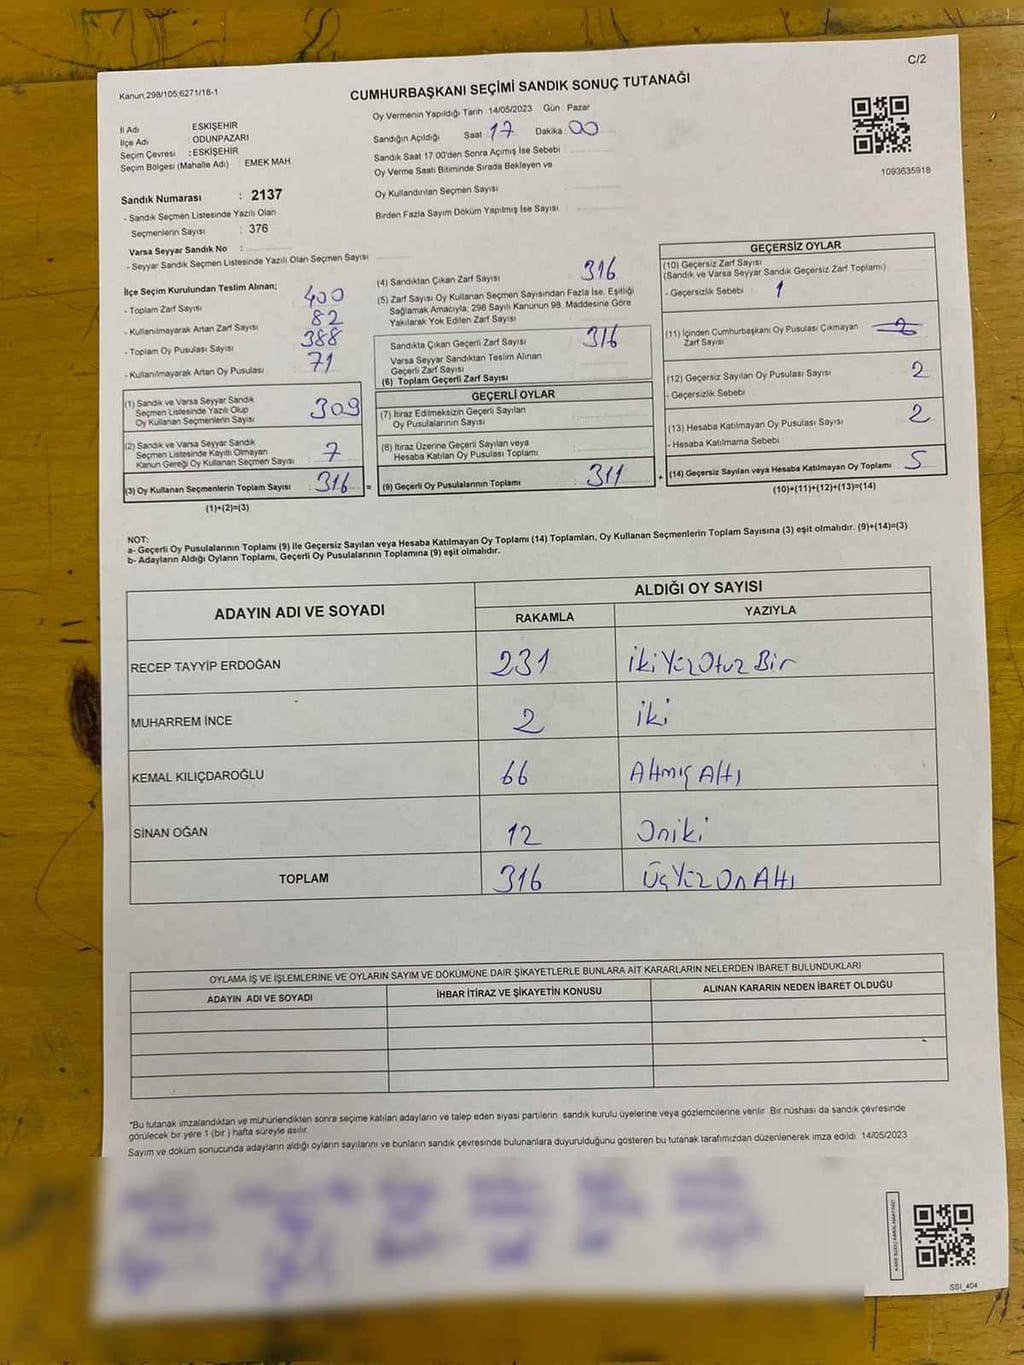 C/2
Kanun 298/105,6271/18-1
CUMHURBAŞKANI SEÇİMİ SANDIK SONUÇ TUTANAĞI
Oy Vermenin Yapıldığı Tarih :14/05/2023 Gün : Pazar
İl Adı : ESKİŞEHİR
İlçe Adı : ODUNPAZARI
Seçim Çevresi : ESKİŞEHİR
Seçim Bölgesi (Mahalle Adı) : EMEK MAH
Sandığın Açıldığı Saat 17 Dakika 00
Sandık Saat 17:00'den Sonra Açılmış İse Sebebi :
Oy Verme Saati Bitiminde Sırada Bekleyen ve
Oy Kullandırılan Seçmen Sayısı :
Birden Fazla Sayım Döküm Yapılmış İse Sayısı :
1093635918
Sandık Numarası : 2137
- Sandık Seçmen Listesinde Yazılı Olan
Seçmenlerin Sayısı : 376
Varsa Seyyar Sandık No :
- Seyyar Sandık Seçmen Listesinde Yazılı Olan Seçmen Sayısı
İlçe Seçim Kurulundan Teslim Alınan;
- Toplam Zarf Sayısı : 400
- Kullanılmayarak Artan Zarf Sayısı : 82
- Toplam Oy Pusulası Sayısı : 388
- Kullanılmayarak Artan Oy Pusulası : 71
(1) Sandık ve Varsa Seyyar Sandık
Seçmen Listesinde Yazılı Olup
Oy Kullanan Seçmenlerin Sayısı : 309
(2) Sandık ve Varsa Seyyar Sandık
Seçmen Listesinde Kayıtlı Olmayan
Kanun Gereği Oy Kullanan Seçmen Sayısı : 7
(3) Oy Kullanan Seçmenlerin Toplam Sayısı : 316 =
(1)+(2)=(3)
(4) Sandıktan Çıkan Zarf Sayısı : 316
(5) Zarf Sayısı Oy Kullanan Seçmen Sayısından Fazla İse, Eşitliği
Sağlamak Amacıyla, 298 Sayılı Kanunun 98. Maddesine Göre
Yakılarak Yok Edilen Zarf Sayısı :
Sandıkta Çıkan Geçerli Zarf Sayısı : 316
Varsa Seyyar Sandıktan Teslim Alınan
Geçerli Zarf Sayısı
(6) Toplam Geçerli Zarf Sayısı
GEÇERLİ OYLAR
(7) İtiraz Edilmeksizin Geçerli Sayılan
Oy Pusulalarının Sayısı :
(8) İtiraz Üzerine Geçerli Sayılan veya
Hesaba Katılan Oy Pusulası Toplamı :
(9) Geçerli Oy Pusulalarının Toplamı : 311 +
GEÇERSİZ OYLAR
(10) Geçersiz Zarf Sayısı
(Sandık ve Varsa Seyyar Sandık Geçersiz Zarf Toplamı)
- Geçersizlik Sebebi : 1
(11) İçinden Cumhurbaşkanı Oy Pusulası Çıkmayan
Zarf Sayısı
(12) Geçersiz Sayılan Oy Pusulası Sayısı 2
- Geçersizlik Sebebi
(13) Hesaba Katılmayan Oy Pusulası Sayısı 2
- Hesaba Katılmama Sebebi
(14) Geçersiz Sayılan veya Hesaba Katılmayan Oy Toplamı : 5
(10)+(11)+(12)+(13)=(14)
NOT:
a- Geçerli Oy Pusulalarının Toplamı (9) ile Geçersiz Sayılan veya Hesaba Katılmayan Oy Toplamı (14) Toplamları, Oy Kullanan Seçmenlerin Toplam Sayısına (3) eşit olmalıdır. (9)+(14)=(3)
b- Adayların Aldığı Oyların Toplamı, Geçerli Oy Pusulalarının Toplamına (9) eşit olmalıdır.
ADAYIN ADI VE SOYADI ALDIĞI OY SAYISI
RAKAMLA YAZIYLA
RECEP TAYYİP ERDOĞAN 231 ikiYüzOtuzBir
MUHARREM İNCE 2 iki
KEMAL KILIÇDAROĞLU 66 Altmış Altı
SİNAN OĞAN 12 Oniki
TOPLAM 316 ÜçYüzOnAltı
OYLAMA İŞ VE İŞLEMLERİNE VE OYLARIN SAYIM VE DÖKÜMÜNE DAİR ŞİKAYETLERLE BUNLARA AİT KARARLARIN NELERDEN İBARET BULUNDUKLARI
ADAYIN ADI VE SOYADI İHBAR İTİRAZ VE ŞİKAYETİN KONUSU ALINAN KARARIN NEDEN İBARET OLDUĞU
*Bu tutanak imzalandıktan ve mühürlendikten sonra seçime katılan adayların ve talep eden siyasi partilerin sandık kurulu üyelerine veya gözlemcilerine verilir. Bir nüshası da sandık çevresinde
görülecek bir yere 1 (bir ) hafta süreyle asılır.
Sayım ve döküm sonucunda adayların aldığı oyların sayılarını ve bunların sandık çevresinde bulunanlara duyurulduğunu gösteren bu tutanak tarafımızdan düzenlenerek imza edildi. 14/05/2023
SSI_404